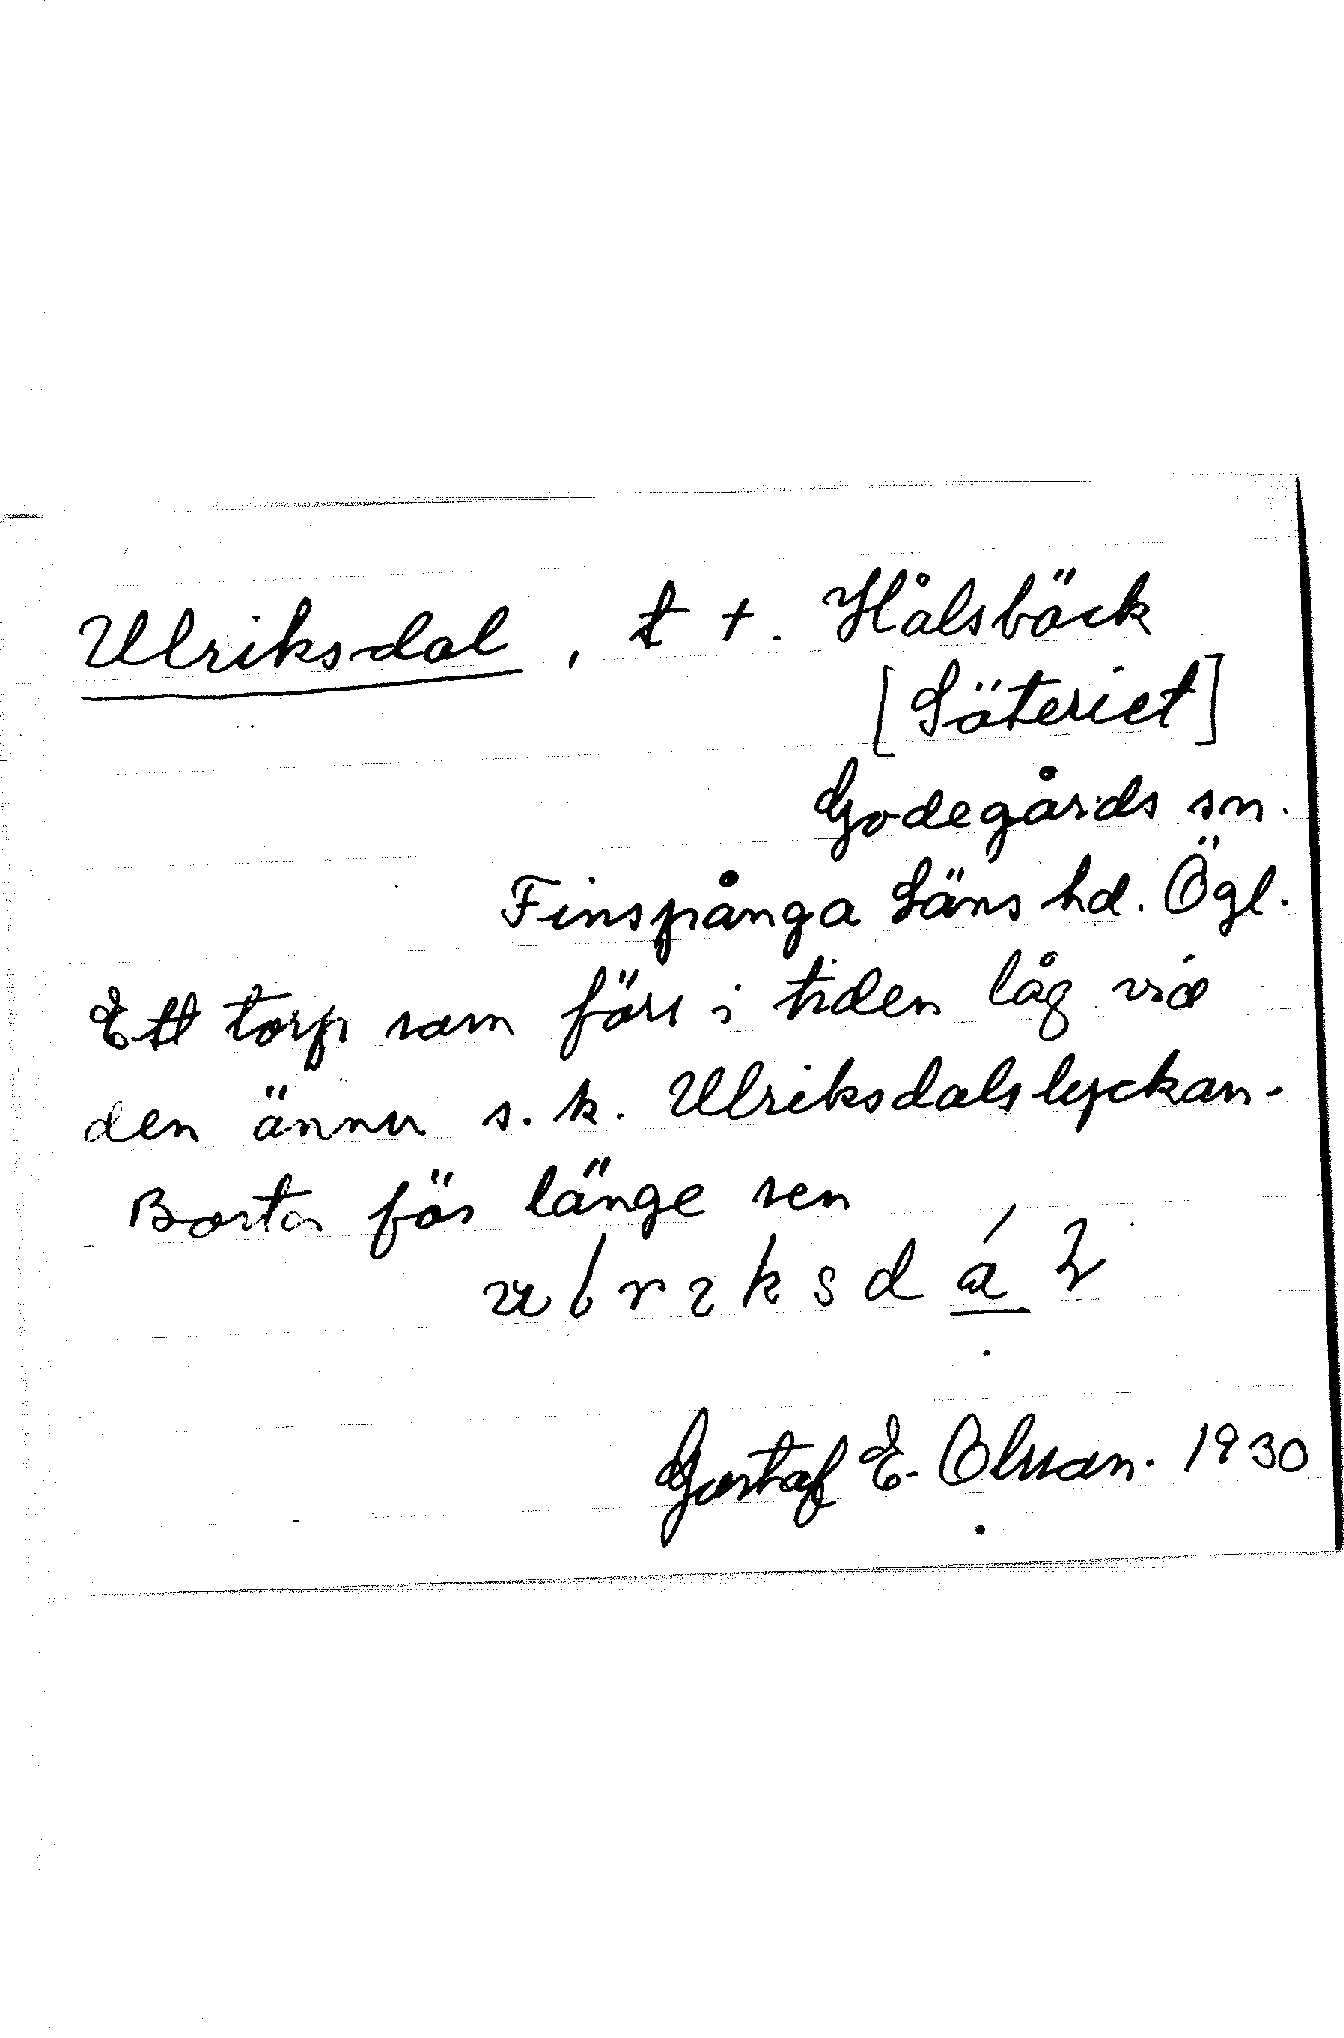 Ulriksdal, t †. Hålsbäck
[Säteriet]
Godegårds sn.
Finspånga Läns hd. Ögl.
Ett torp som förr i tiden låg vid
den ännu s.k. Ulriksdalslyckan.
Borta för länge sen
Gustaf E. Olsson. 1930